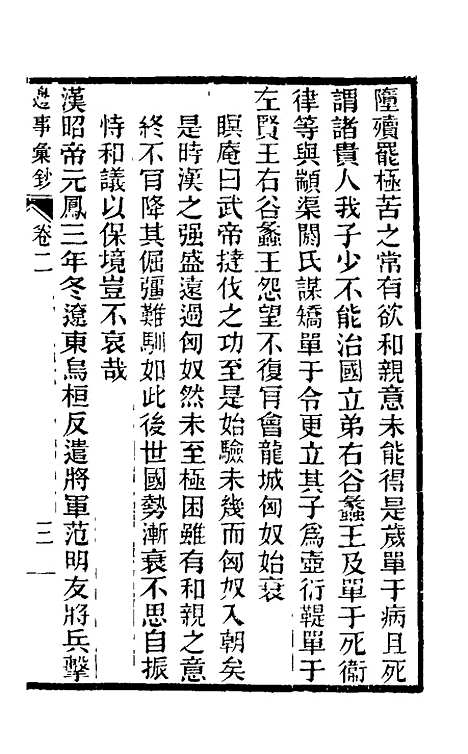 墮殰罷極苦之常有欲和親意未能得是歲單于病且死
謂諸貴人我子少不能治國立弟右谷蠡王及單于死衞
律等與顓渠閼氏謀矯單于令更立其子爲壺衍鞮單于
左賢王右谷蠡王怨望不復肯會龍城匈奴始衰
瞑庵曰武帝撻伐之功至是始驗未幾而匈奴入朝矣
是時漢之强盛遠過匈奴然未至極困雖有和親之意
終不肯降其倔彊難馴如此後世國勢漸衰不思自振
恃和議以保境豈不哀哉
漢昭帝元鳳三年冬遼東烏桓反遣將軍范明友將兵擊
邊事彙鈔
卷二
三